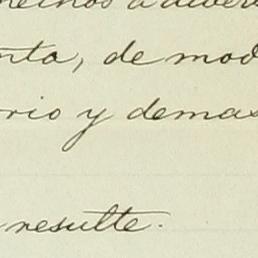 nta, de mod
rio y demas
resulte.